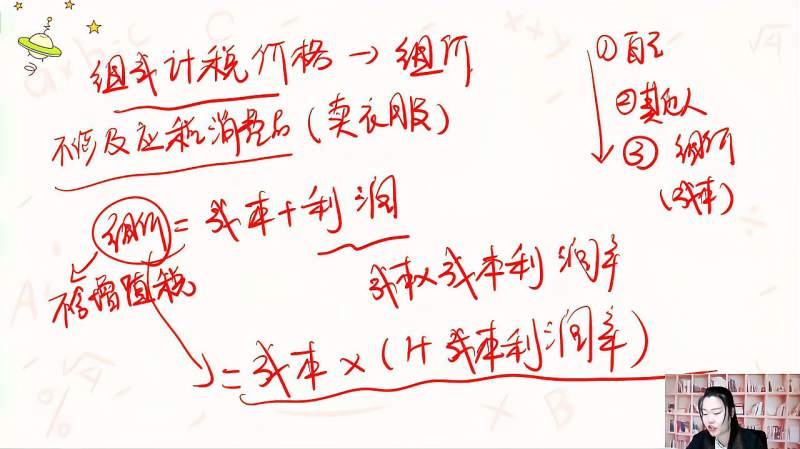 组成计税价格→组价
不涉及应税消费品(卖衣服)
组价=成本+利润
不含增值税
成本×成本利润率
=成本×(1+成本利润率)
①自己
②其他人
③组价
(成本)